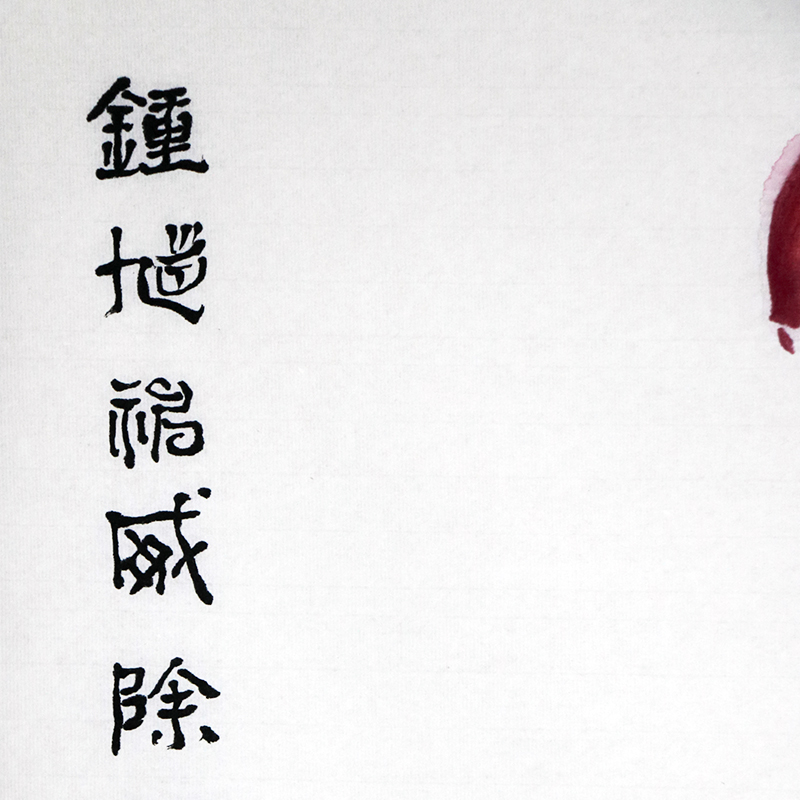 鍾馗神威除